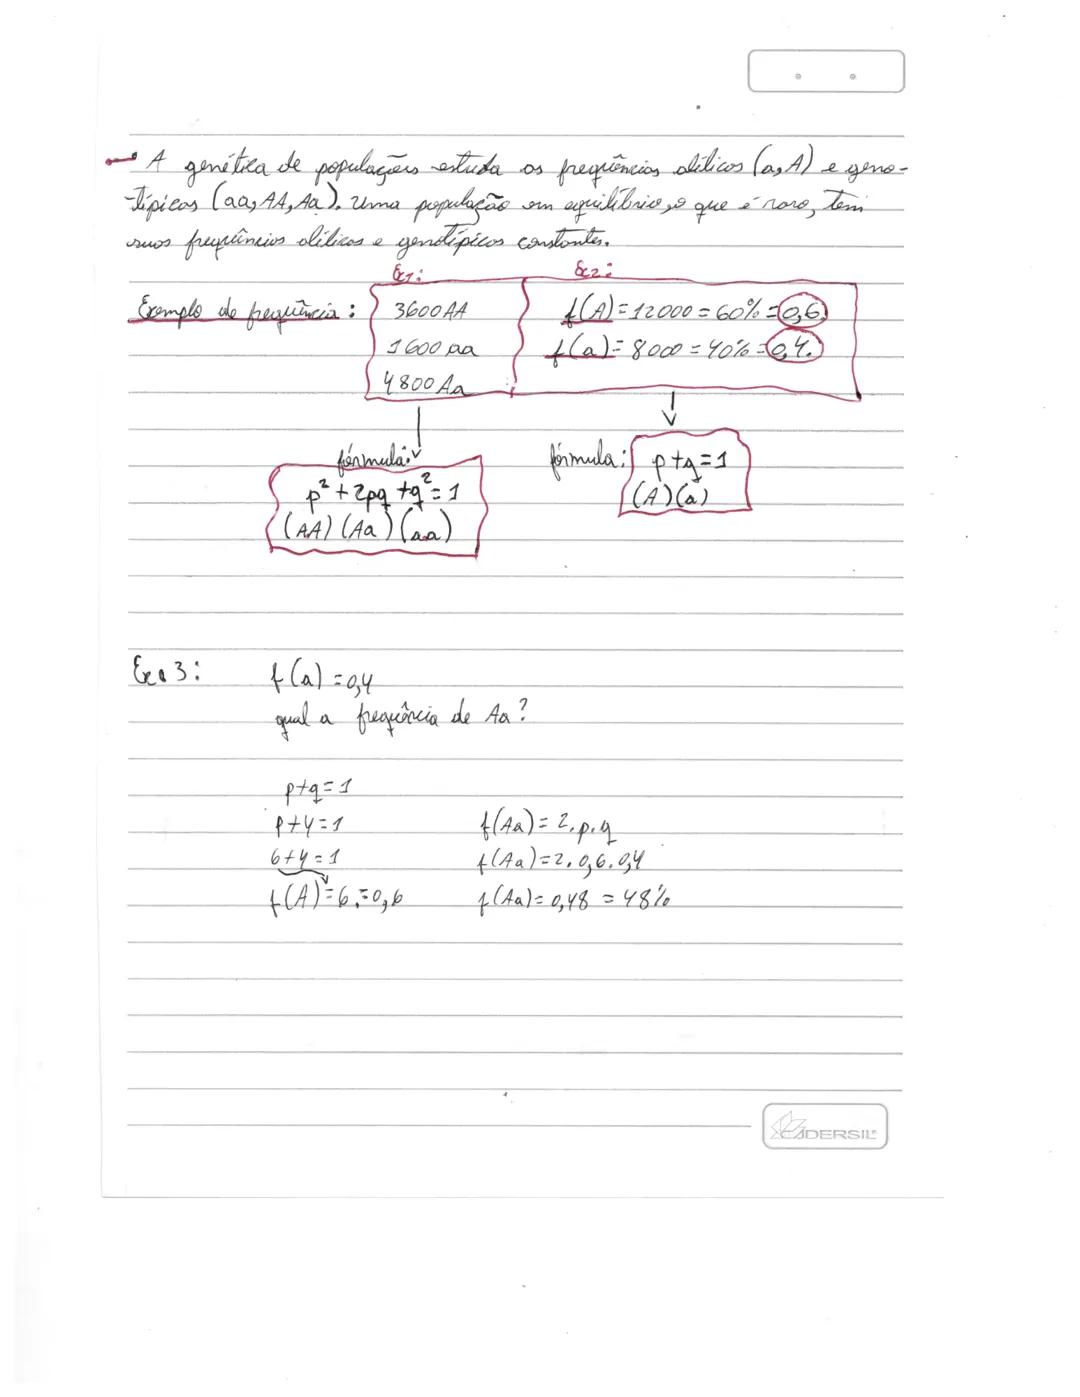 A genética de populações estuda as frequências alélicas (a, A) e geno-
típicas (aa, AA, Aa). Uma população em equilíbrio, o que é raro, tem
suas frequências alélicas e genotípicas constantes.
Ex1: Ex2:
Exemplo de frequência: 3600 AA f(A) = 12000 = 60% = 0,6.
1600 aa f(a) = 8000 = 40% = 0,4.
4800 Aa
fórmula: fórmula: p+q=1
p²+2pq+q²=1 (A)(a)
(AA) (Aa) (aa)
Ex. 3: f(a) = 0,4
qual a frequência de Aa?
p+q=1
p+4=1 f(Aa) = 2.p.q
6+4=1 f(Aa) = 2.0,6.0,4
f(A)=6.=0,6 f(Aa) = 0,48 = 48%
CADERSIL